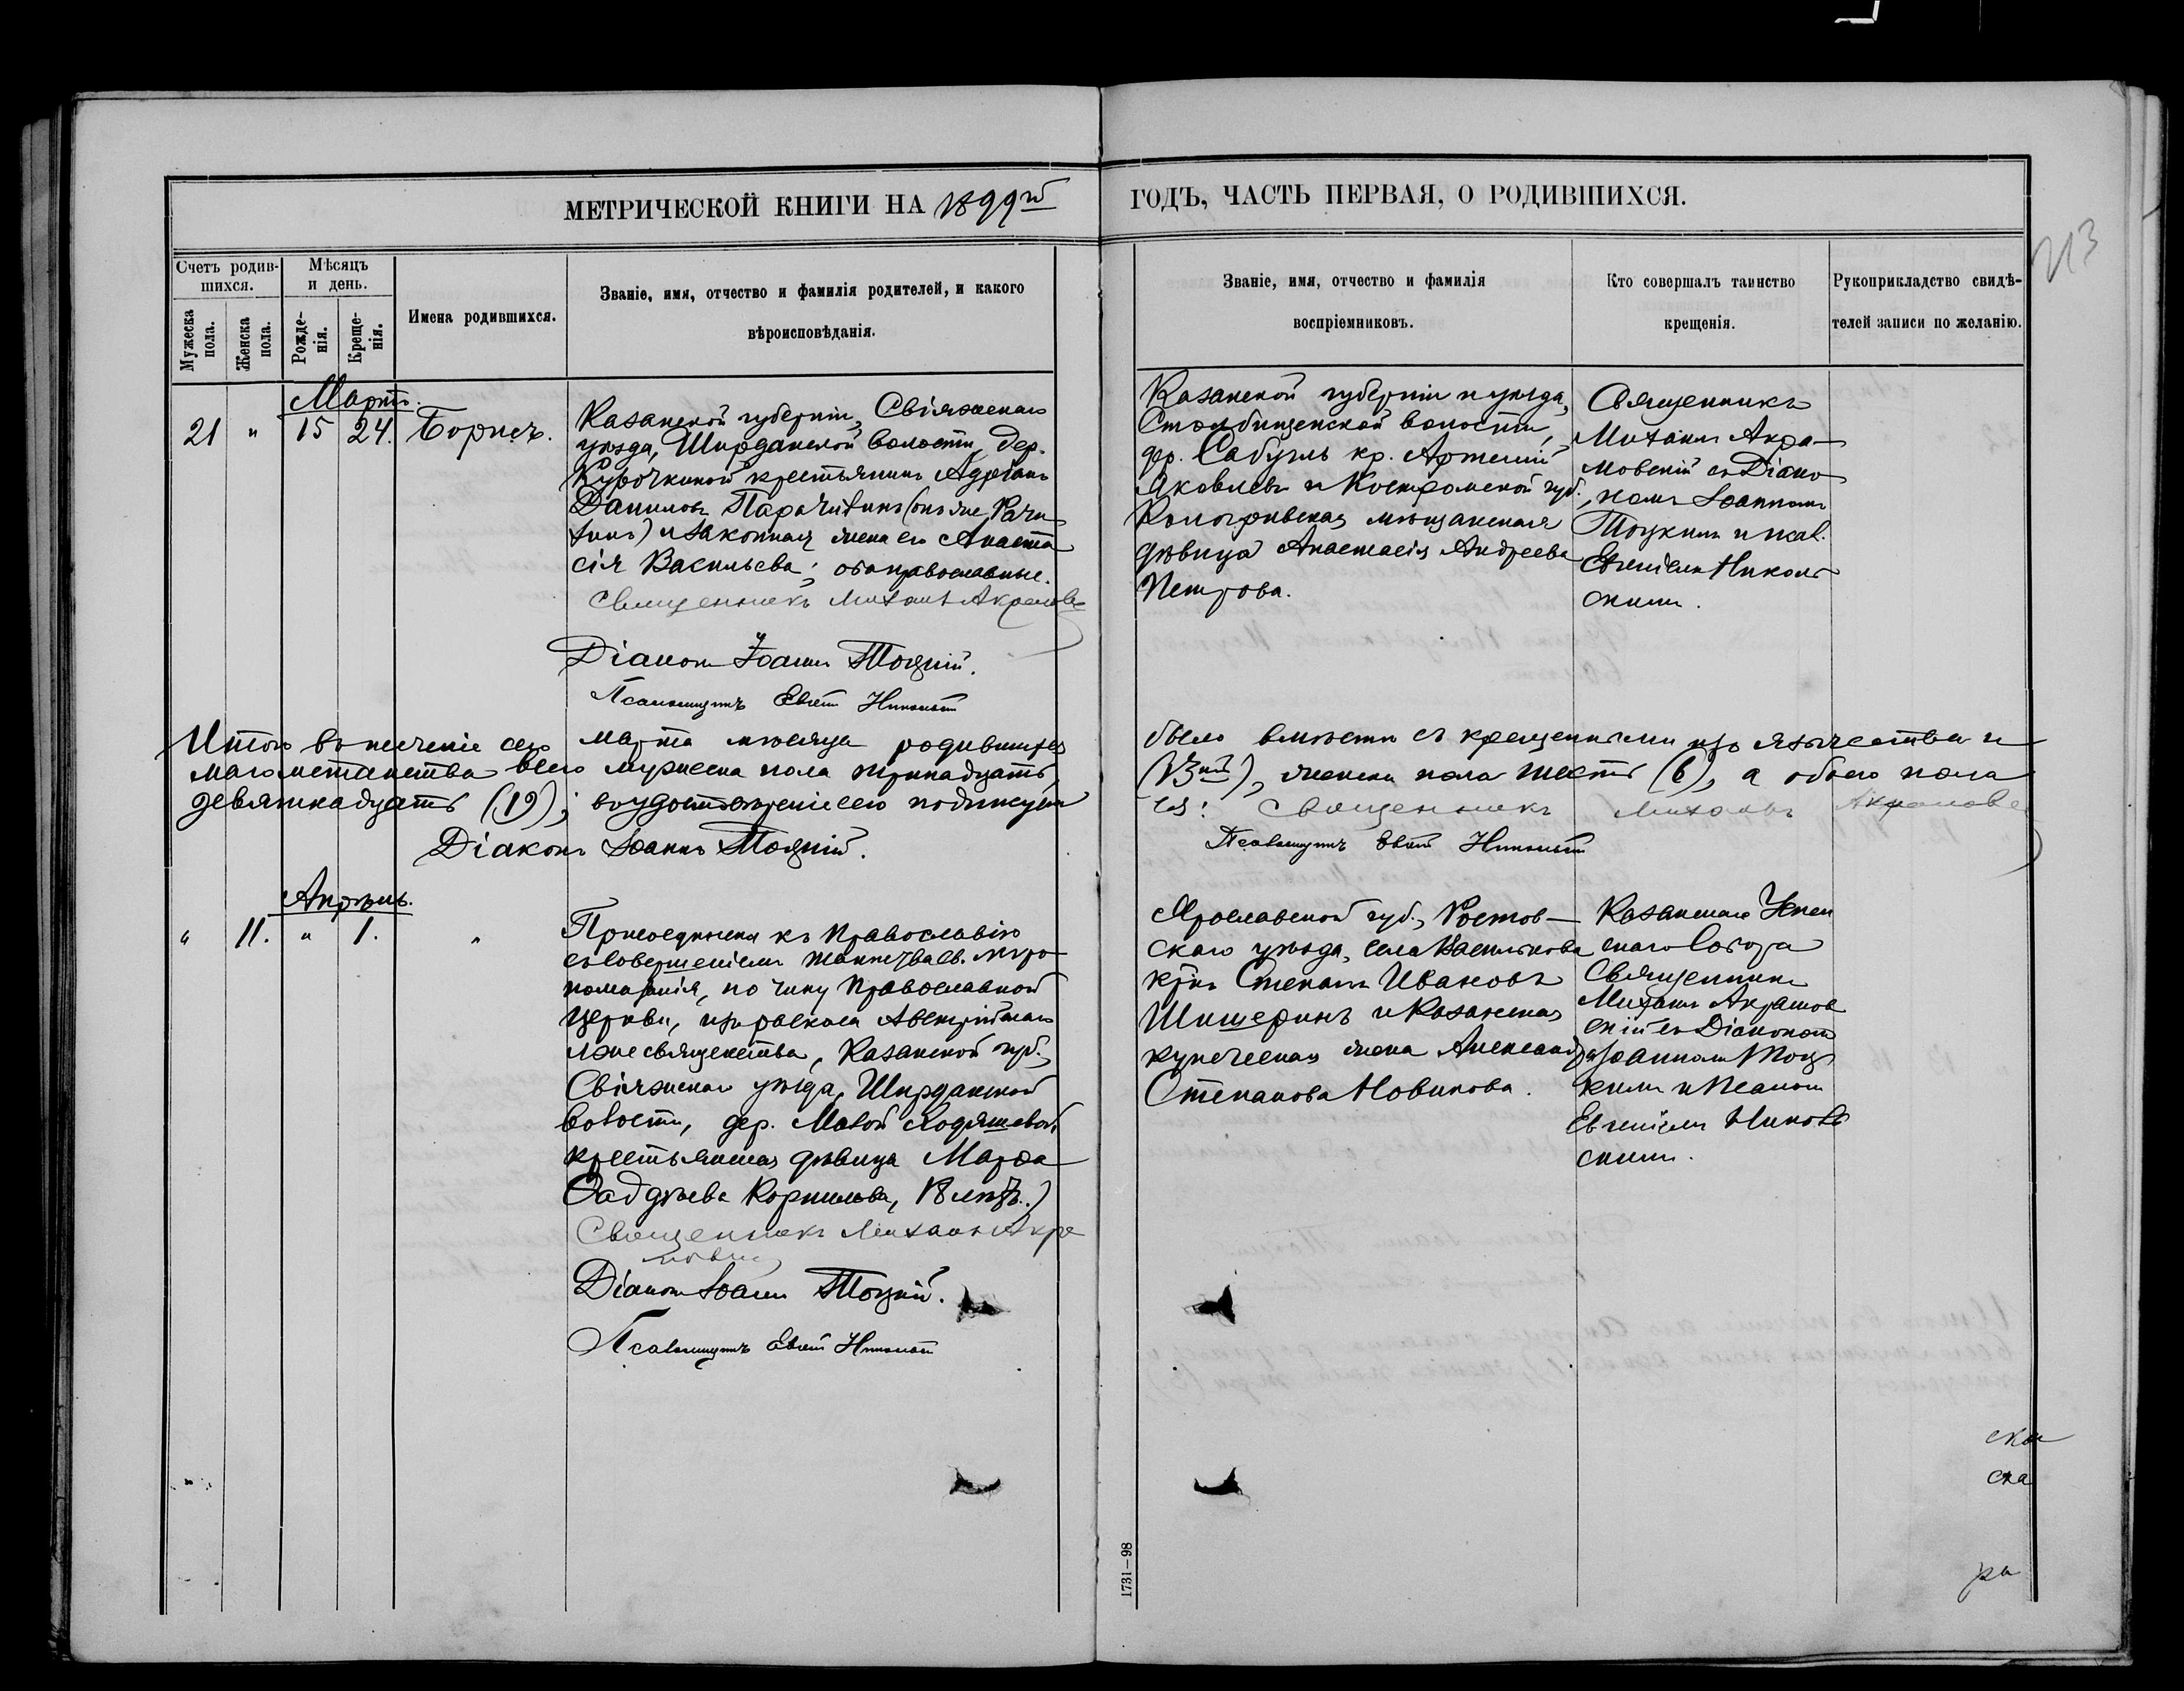 МЕТРИЧЕСКОЙ КНИГИ НА 1899й
ГОДЪ, ЧАСТЬ ПЕРВАЯ, О РОДИВШИХСЯ.
213
Счетъ родив-
шихся.
Мужеска
пола.
Женска
пола.
Мѣсяцъ
и день.
Рожде-
нія.
Креще-
нія.
Имена родившихся.
Званіе, имя, отчество и фамилія родителей, и какого
вѣроисповѣданія.
Званіе, имя, отчество и фамилія
воспріемниковъ.
Кто совершалъ таинство
крещенія.
Рукоприкладство свидѣ-
телей записи по желанію.
Мартъ.
21 " 15 24. Борисъ.
Казанской губерніи, Свіяжскаго
уѣзда, Ширданской волости, дер.
Курочкиной крестьянинъ Адріанъ
Даниловъ
и законная жена его Анаста
сія Васильева; оба православные.
Священникъ Михаилъ Акрамовс
Діаконъ Іоаннъ Тоцкій.
Псаломщикъ Евген Никольск
Казанской губерніи и уѣзда,
Столбищенской волости,
дер. Сабуголь кр. Артемій
Яковлевъ и Костромской губ.
Кологривская мѣщанская
дѣвица Анастасія Андреева
Петрова.
Священникъ
Михаилъ Акра-
мовскій съ Діако
номъ Іоанномъ
Тоцкимъ и псал.
Евгеніемъ Николь
скимъ.
Итого въ теченіе сего марта мѣсяца родившихся
магометанства всего мужеска пола тринадцать
девятнадцать (19); въ удостовѣреніе сего подписуем
Діаконъ Іоаннъ Тоцкій.
было вмѣстѣ съ крещенными изъ язычества и
(13ть), женска пола шесть (6), а обоего пола
ся: Священникъ Михаилъ Акрамовс
Псаломщикъ Евген Никольск
Апрѣль.
" 11. " 1. "
Присоединена къ Православію
съ совершеніемъ таинства св. муро
помазанія, по чину Православной
Церкви, изъ раскола Австрійскаго
лжесвященства, Казанской губ.,
Свіяжскаго уѣзда, Ширданской
волости, дер. Малой Ходяшевой
крестьянская дѣвица Марѳа
Ѳаддѣева Корнилова, 18 лѣтъ.
Священникъ Михаилъ Акра
мовскій
Діаконъ Іоаннъ Тоцкій.
Псаломщикъ Евген Никольск
Ярославской губ., Ростов-
скаго уѣзда, села Василькова
крнъ Степанъ Ивановъ
Шишеринъ и Казанская
купеческая жена Александра
Степанова Новикова.
Казанскаго Успен
скаго Собора
Священникъ
Михаилъ Акрамов
скій съ Діакономъ
Іоанномъ Тоц
кимъ и Псалом
Евгеніемъ Николь
скимъ.
1731—98
ска
ра